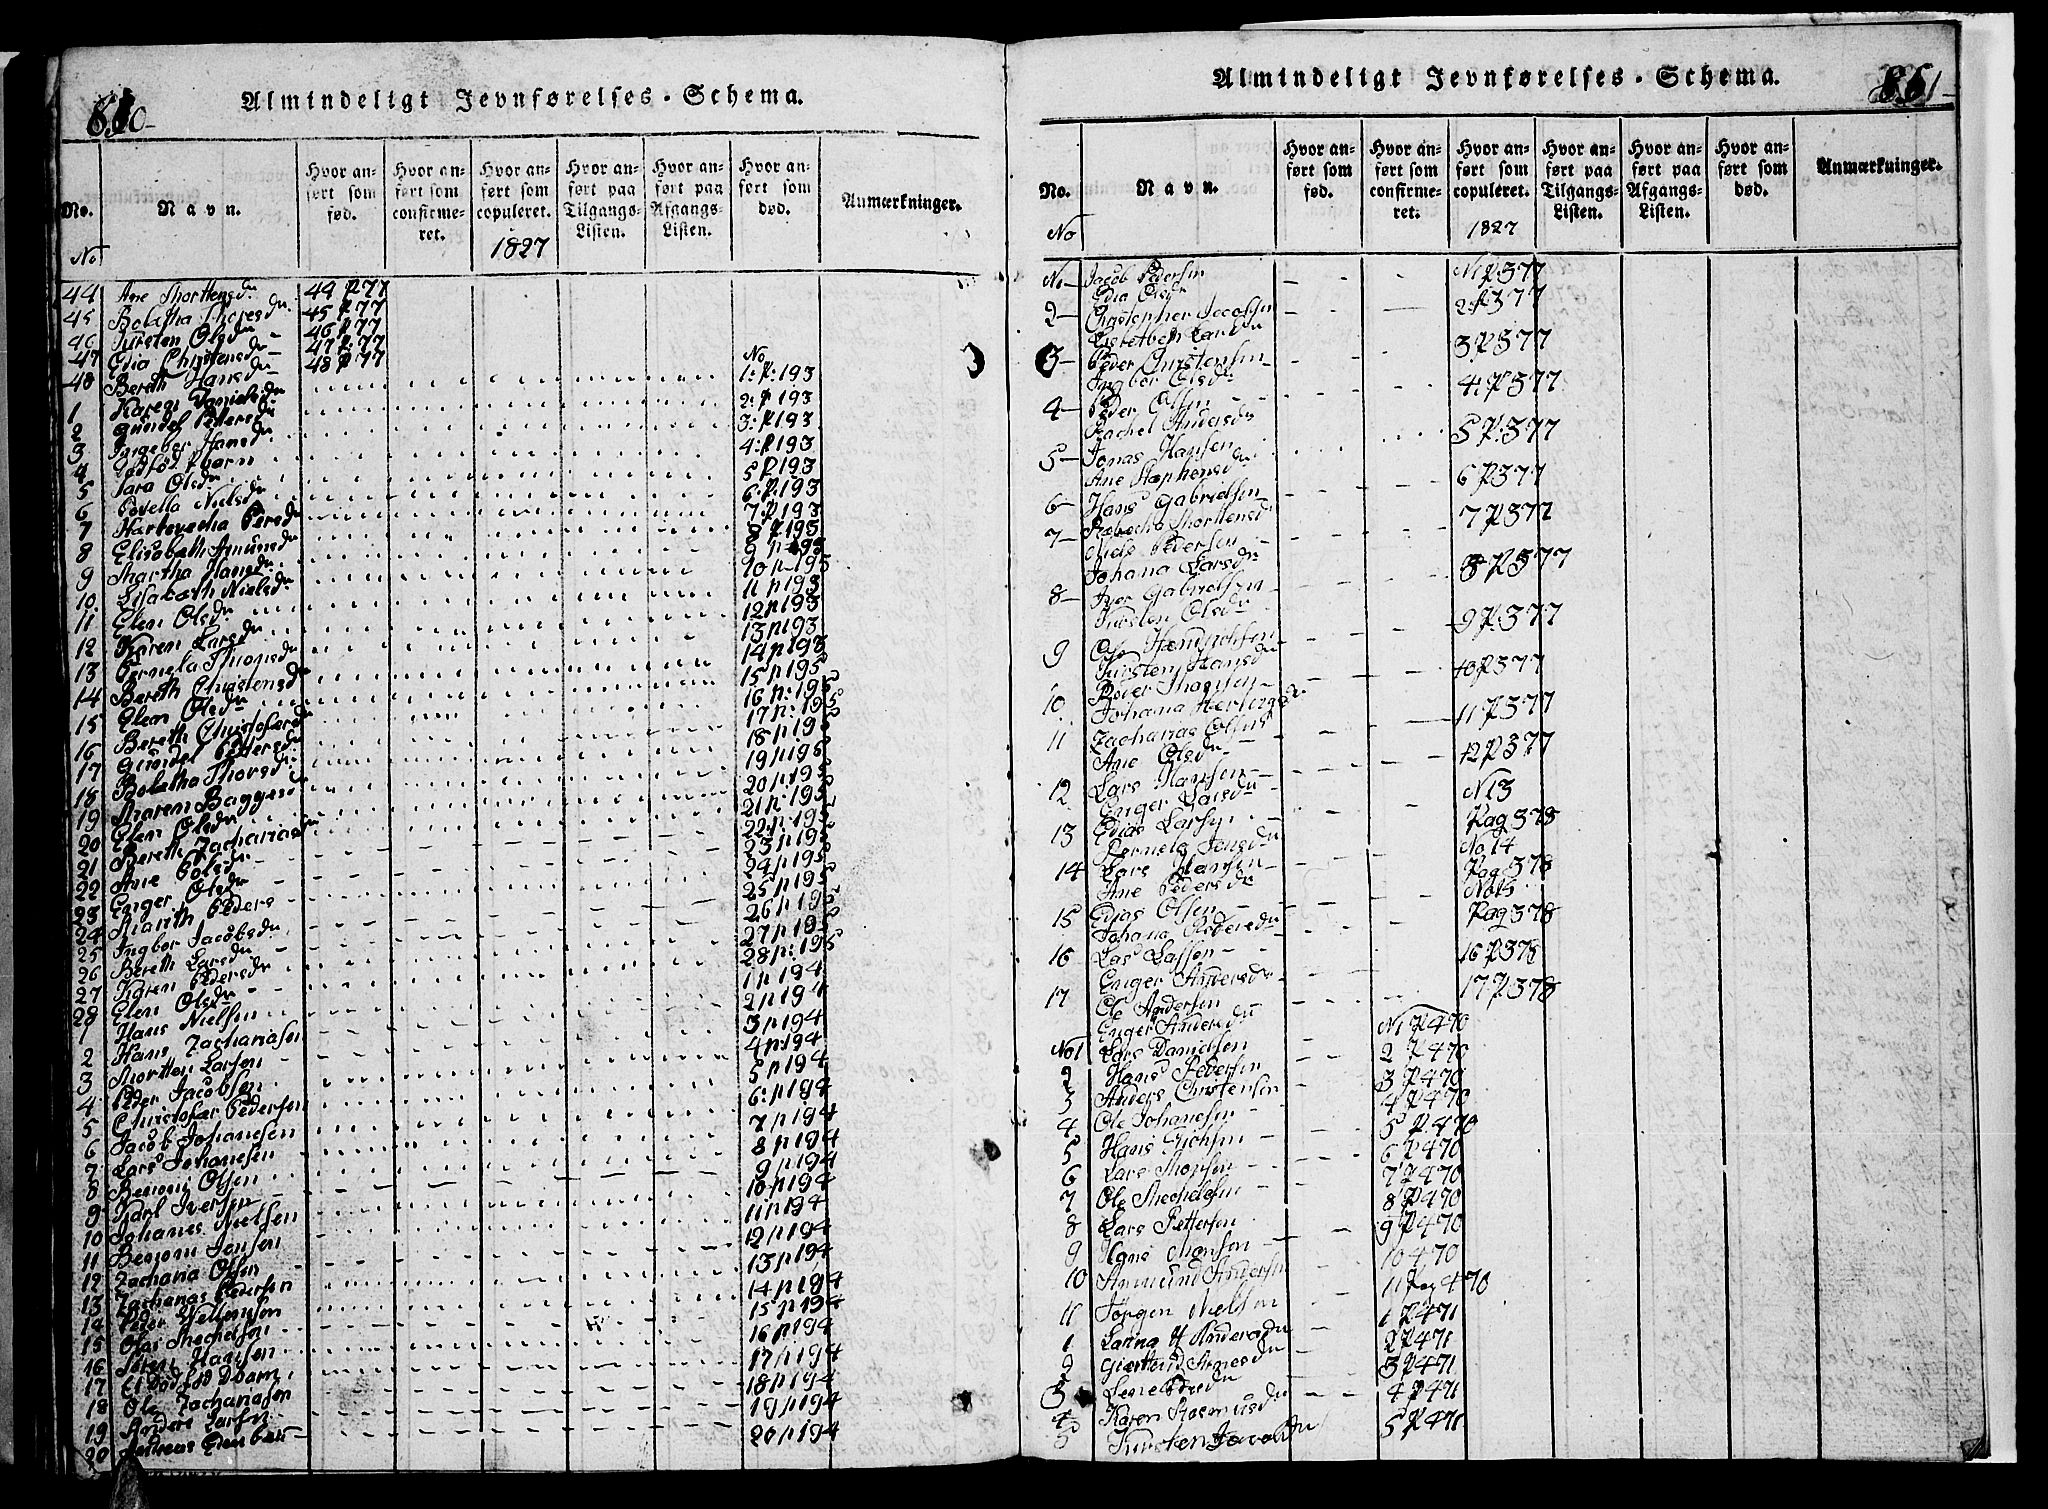 Almindeligt Jevnførelses-Schema.
No.
Navn.
Hvor anført som fød.
Hvor anført som confirmeret.
Hvor anført som copuleret.
Hvor anført paa Tilgangs-Listen.
Hvor anført paa Afgangs-Listen.
Hvor anført som død.
Anmærkninger.
No
1827
44 Ane Morttensdr 44 P 77
45 Boletha Thoresdr 45 P 77
46 Kirsten Olsdr 46 P 77
47 Edia Christensdr 47 P 77
48 Bereth Hansdr 48 P 77
No
1 Karen Danielsdr 1: P: 193
2 Gundel Pedersdr 2: P 193
3 Ingebor Hansdr 3: P 193
4 Dødfød Pbarn 4: P 193
5 Sara Olsdr 5 P 193
6 Povella Nielsdr 6: P: 193
7 7 P 193
8 Elisabeth Amunsdr 8 P 193
9 Martha Hansdr 9 p 193
10 Lisabeth Nielsdr 10 p 193
11 Elen Olsdr 11 p 193
12 Karen Larsdr 12 p 193
13 Pernela Monsdr 13 p 193
14 Bereth Christensdr 14 p 193
15 Elen Olsdr 15 p 195
16 Bereth Christofersdr 16 p: 195
17 Gundel Pedersdr 17 p: 195
18 Boletha Thorsdr 18 p 195
19 Maren Baggesdr 19 p 195
20 Elen Olsdr 20 p 195
21 Bereth Zachariasdr 21 p: 195
22 Ane Polsdr 22: p: 195
23 Enger Olsdr 23 p 195
24 Marith Peders 24 p 195
25 Ingbor Jacobsdr 25 p 195
26 Bereth Larsdr 26 p 195
27 Karen Pedersdr 27 p 195
28 Elen Olsdr 28 p: 195
1 Hans Nielsen 1 p 194
2 Hans Zachariasen 2 p 194
3 Mortten Larsen 3 p 194
4 Peder Jacobsen 4 p: 194
5 Christofær Pedersen 5 p 194
6 Jacob Johanesen 6: p 194
7 Lars Johanesen 7 p 194
8 Benoni Olsen 8 p 194
9 Karl Iversen 9 p 194
10 Johanes Nielsen 10 p 194
11 Benoni Jensen 11 p 194
12 Zacharia Olsen 12 p 194
13 Zacharias Pedersen 13 p 194
14 Peder Wellumsen 14 p 194
15 Olai Mechelsen 15 p 194
16 Sören Hansen 16 p 194
17 Et Dødfød Dbarn 17 p 194
18 Ole Zachariasen 18 p 194
19 Anders Larsen 19 p 194
20 Andreas 20 p 194
Almindeligt Jevnførelses-Schema.
No.
Navn.
Hvor anført som fød.
Hvor anført som confirmeret.
Hvor anført som copuleret.
Hvor anført paa Tilgangs-Listen.
Hvor anført paa Afgangs-Listen.
Hvor anført som død.
Anmærkninger.
No
1827
Jacob Pedersen N1 P 377
Edia Olsdr
2 Christopher Jacobsen 2: P 377
Lisbetbeh Larsdr
3 Peder Christensen 3 P 377
Ingbor Olsdr
4 Peder Olsen 4: P 377
Rachel Andersdr
5 Jonas Hansen 5 P: 377
Ane Stephensdr
6 Hans Gabrielsen 6 P 377
Rebecha Morttensd
7 Niels Pedersen 7 P 377
Johana Larsdr
8 Iver Gabrielsen 8 P 377
Kirsten Olsdr
9 Ole Hendrichsen 9 P: 377
Kirsten Hansdr
10 Peder Monsen 10 P 377
Johana
11 Zacharias Olsen 11 P 377
Ane Olsdr
12 Lars Hansen 12 P 377
Enger Larsdr
13 Edias Larsen N 13
Pernela Jensdr Pag 378
14 Lars Hansen No 14
Ane Pedersdr Pag 378
15 Edias Olsen No 15
Johana Pedersdr Pag 378
16 Lars Lassen 16 P 378
Enger Andersdr
17 Ole Andersen 17 P 378
Enger Andersdr
No 1 Lars Danielsen N1 P 470
2 Hans Pedersen 2 P 470
3 Anders Christensen 3 P 470
4 Ole Johanesen 4 P 470
5 Hans 5 P 470
6 Lars Monsen 6 P 470
7 Ole Mechelsen 7 P 470
8 Lars Pettersen 8 P 470
9 Hans Monsen 9 P 470
10 Ammund Andersen 10 470
11 Jörgen Nielsen 11 Pag 470
1 Lanna H Andersdr 1 P 471
2 Giertrud Arnesdr 2 P 471
3 Lene Pedersdr 3 P 471
4 Karen Rasmusdr 4 P 471
5 Kirsten Jacobsdr 5 P 471